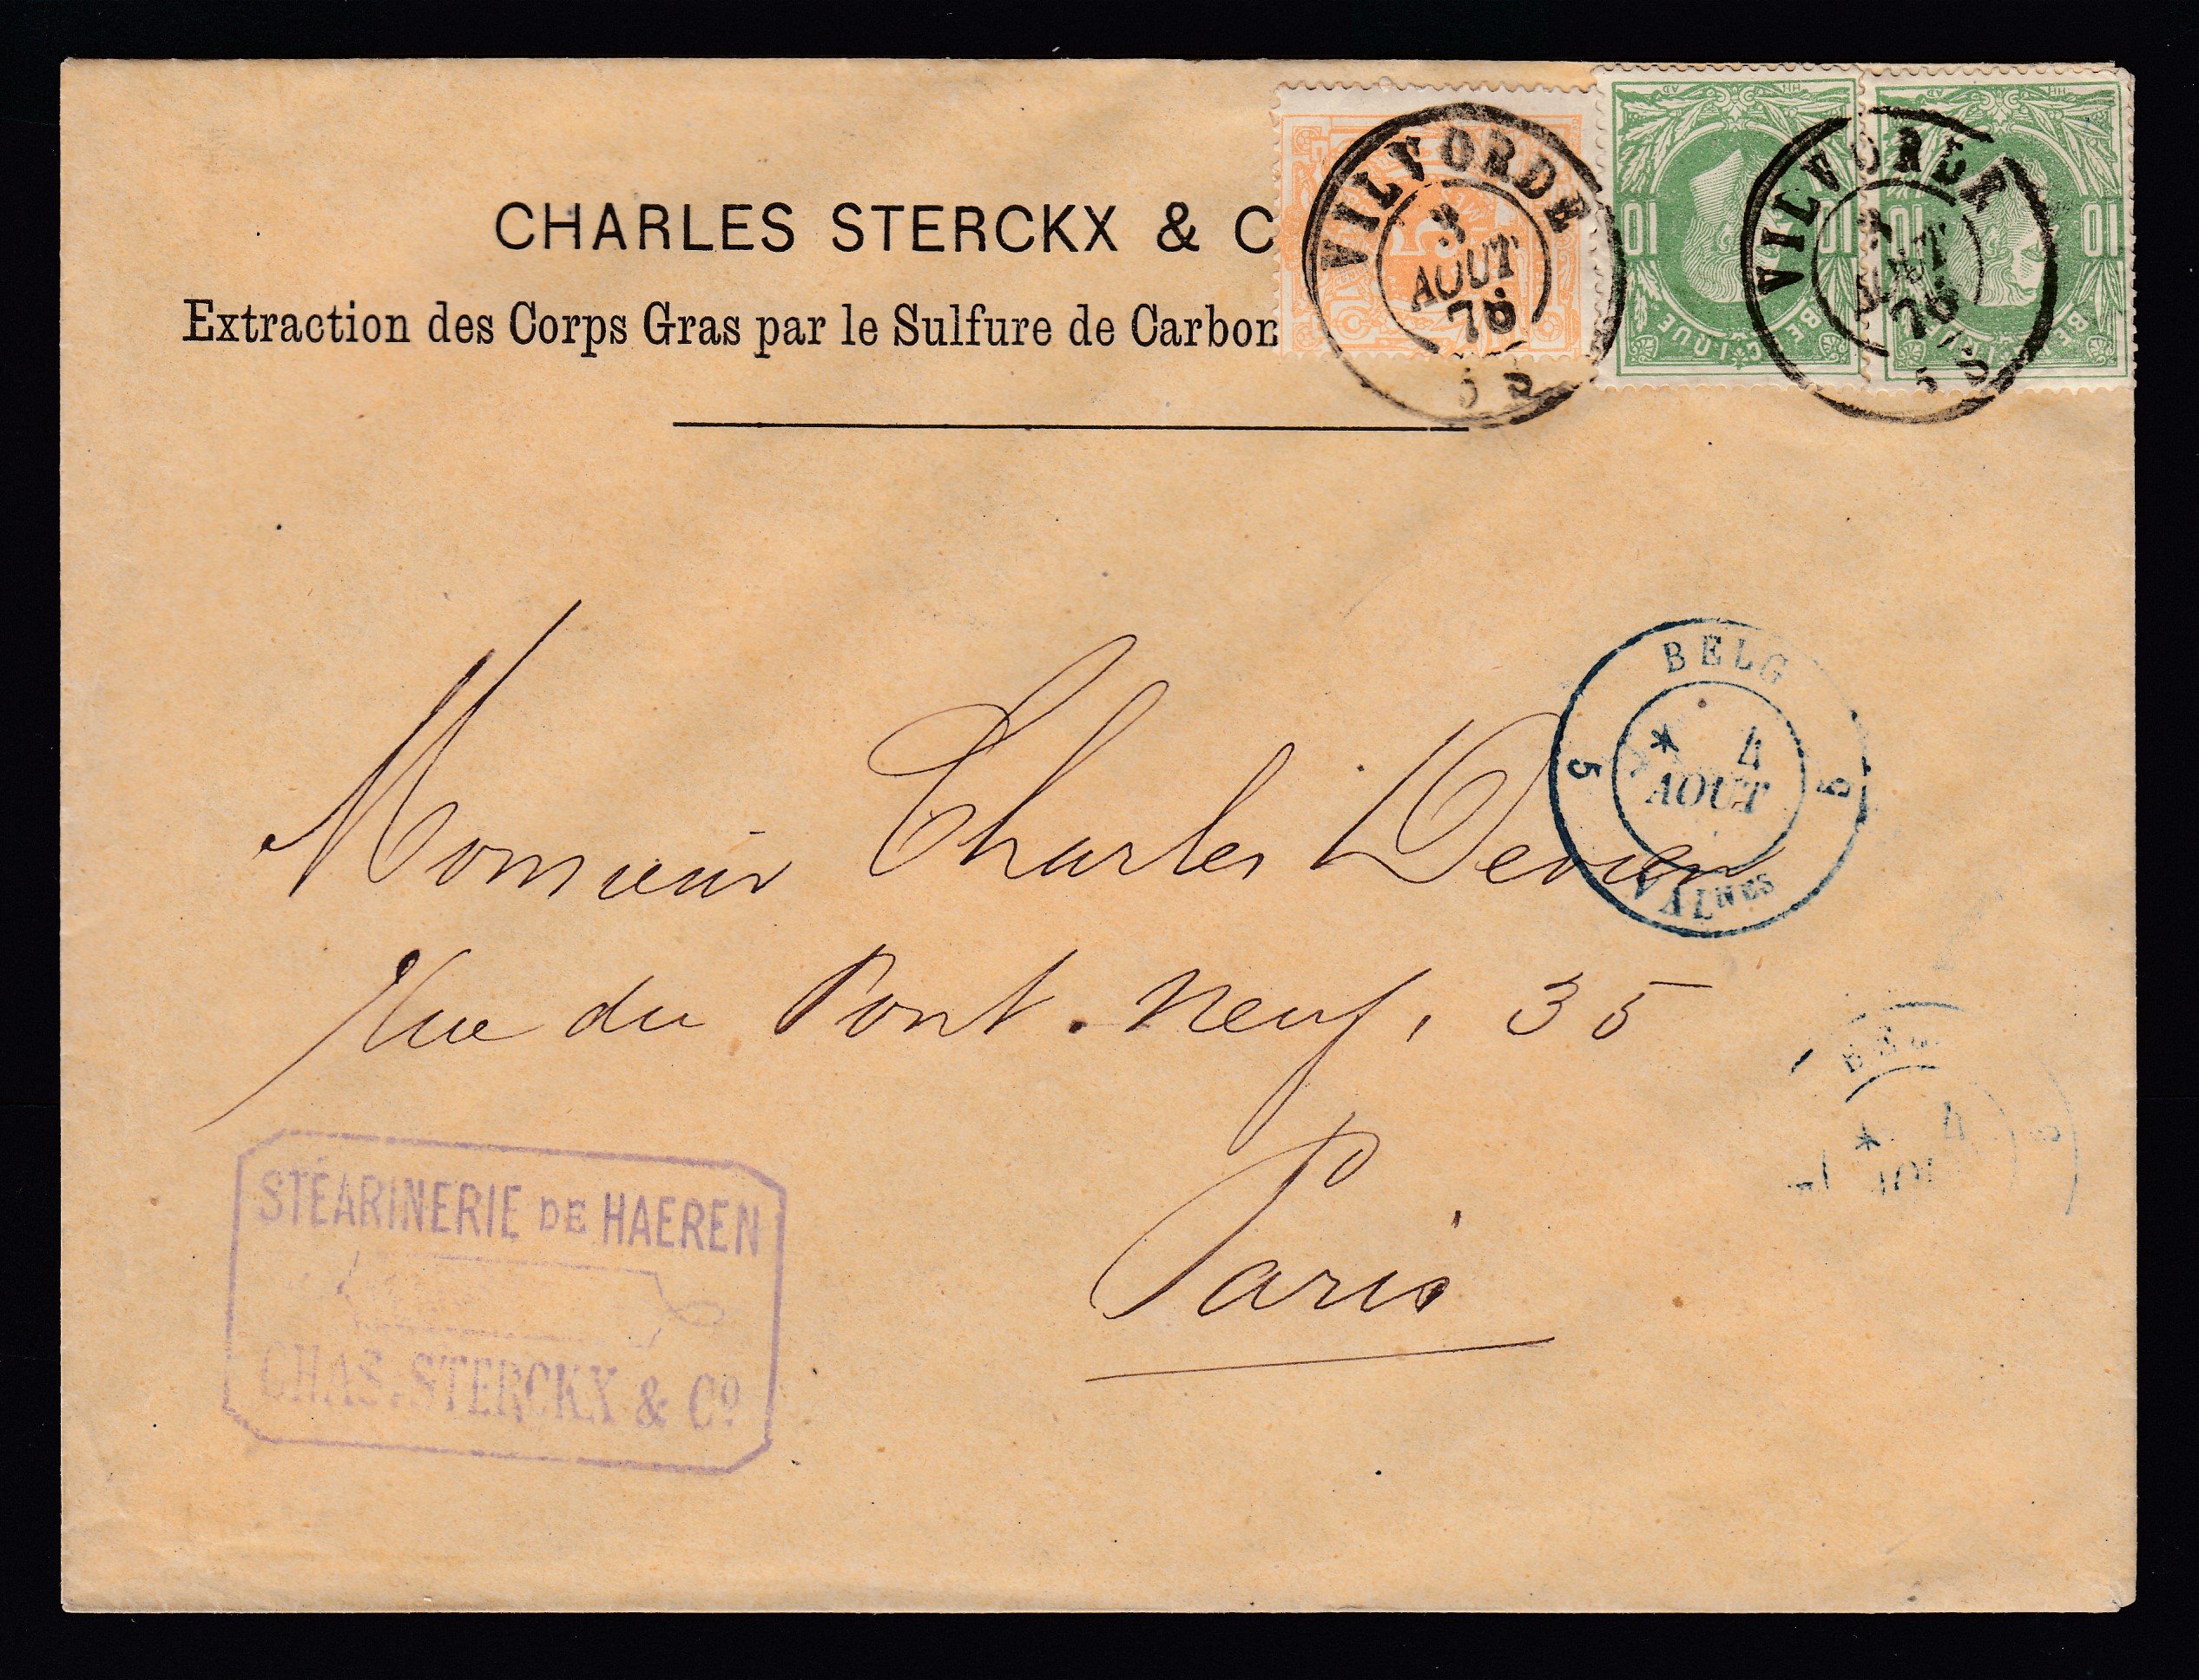 CHARLES STERCKX & C
Extraction des Corps Gras par le Sulfure de Carbon
VILVORDE
3
AOUT
76
5 S
10 10
BELGIQUE
VILVORDE
3
AOUT
76
5 S
10 10
BELG
* 4
AOUT
5
VALNES
Monsieur Charles
Rue du Pont-Neuf, 35
Paris
* 4
STÉARINERIE DE HAEREN
CHAS. STERCKX & Cº